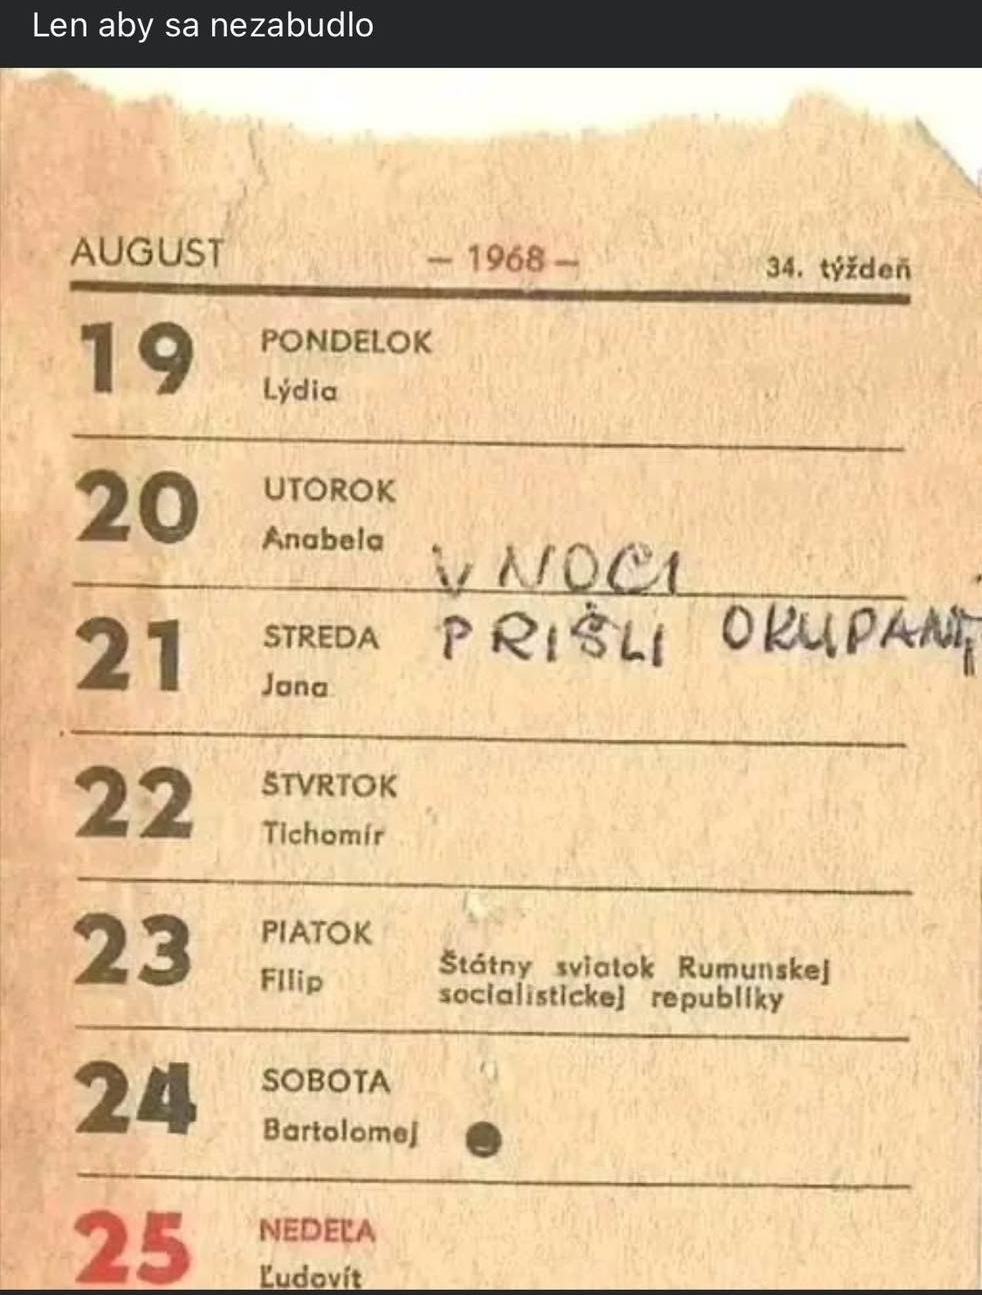 Len aby sa nezabudlo
AUGUST — 1968 — 34. týždeň
19 PONDELOK
Lýdia
20 UTOROK
Anabela
V NOCI
21 STREDA PRIŠLI OKUPANTI
Jana
22 ŠTVRTOK
Tichomír
23 PIATOK
Filip
Štátny sviatok Rumunskej
socialistickej republiky
24 SOBOTA
Bartolomej
25 NEDEĽA
Ľudovít